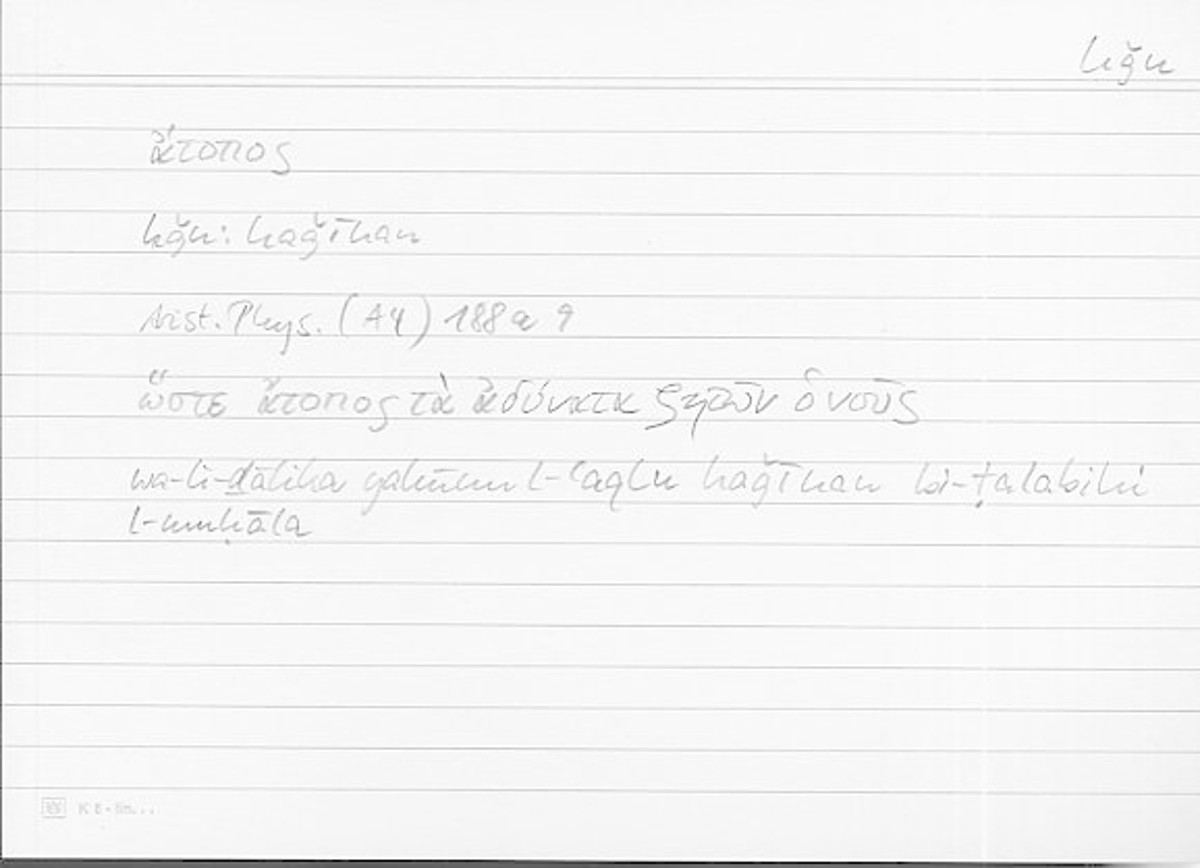 hǧn
ἄτοπος
hǧn: haǧīnan
Arist. Phys. (A4) 188 a 9
ὥστε ἄτοπος τὰ ἀδύνατα ζητῶν ὁ νοῦς
wa-li-ḏālika yakūnu l-ʿaqlu haǧīnan bi-ṭalabihi
l-muḥāla